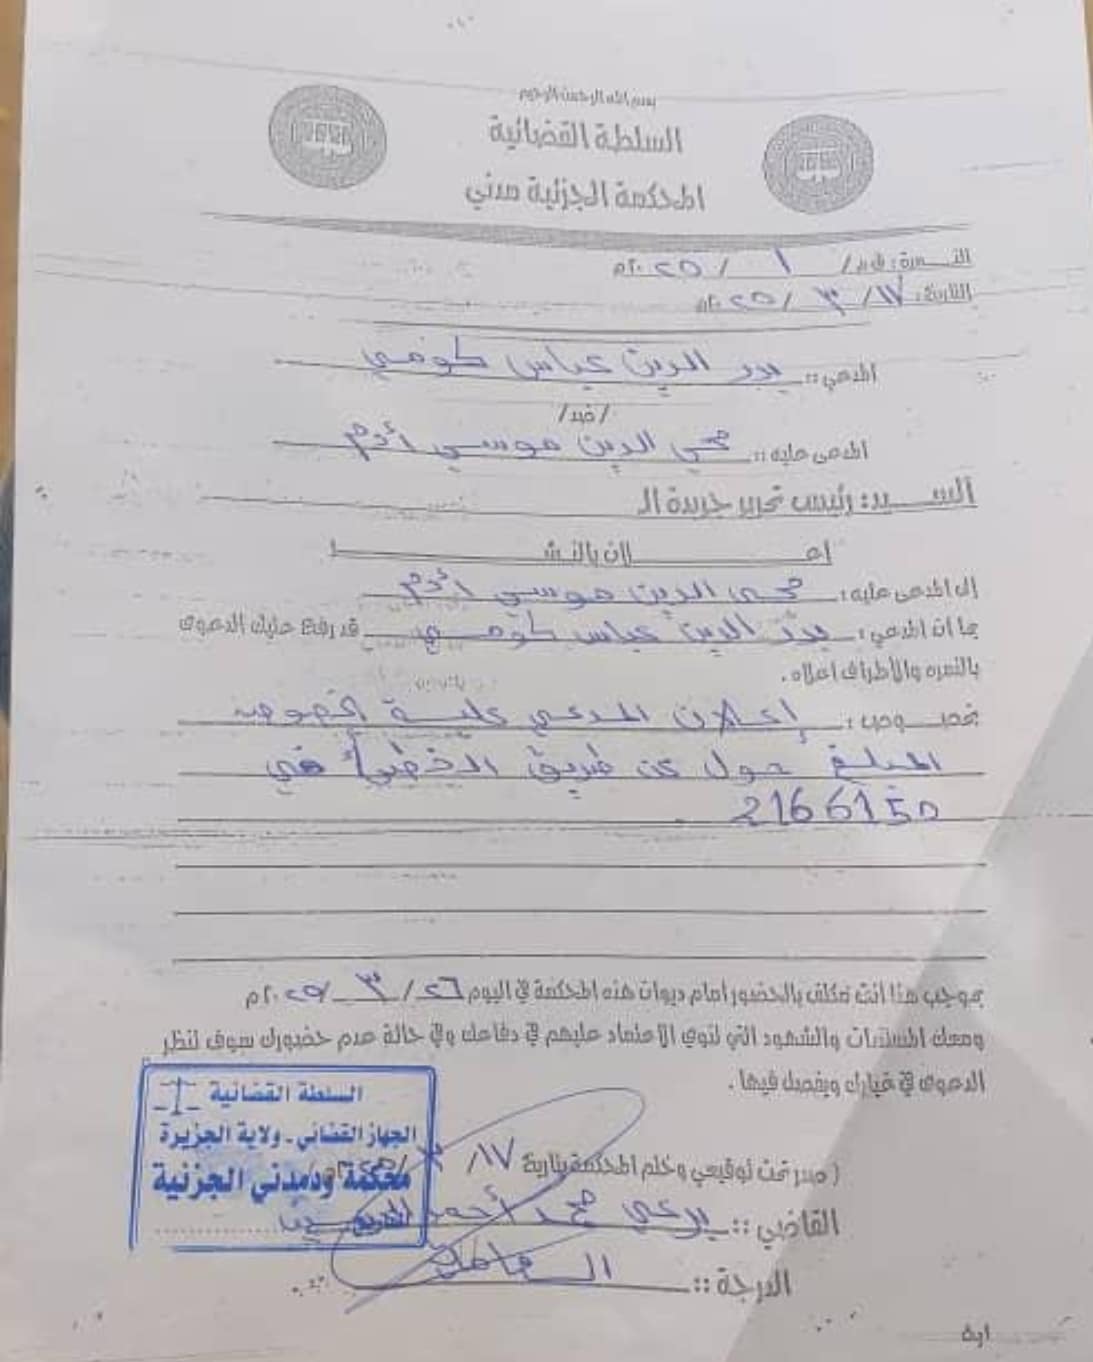 بسم الله الرحمن الرحيم
السلطة القضائية
المحكمة الجزئية مدني
النمرة: ق م/ ١ /٢٠٢٥م
التاريخ: ١٧/ ٣ /٢٠٢٥م
المدعي :: بدر الدين عباس كومي
/ضد/
المدعى عليه :: محي الدين موسى أدم
السيد: رئيس تحرير جريدة الـ
إعلان بالنشر
إلى المدعى عليه: محي الدين موسى أدم
بما ان المدعي: بدر الدين عباس كومي قد رفع عليك الدعوى
بالنمره والأطراف اعلاه.
بخصوص: إعلان المدعي علية بخصوص
المبلغ حول عن طريق الخطأ في
2166150
بموجب هذا أنت مكلف بالحضور امام ديوان هذه المحكمة في اليوم ٢٦/ ٣ /٢٠٢٥م
ومعك المستندات والشهود التي تنوي الأعتماد عليهم في دفاعك وفي حالة عدم حضورك سوف تنظر
الدعوى في غيابك ويفصل فيها.
السلطة القضائية
الجهاز القضائي - ولاية الجزيرة
محكمة ودمدني الجزئية
(صدر تحت توقيعي وختم المحكمة بتاريخ ١٧/ ٣
القاضي :: محمد أحمد
الدرجة ::
اية